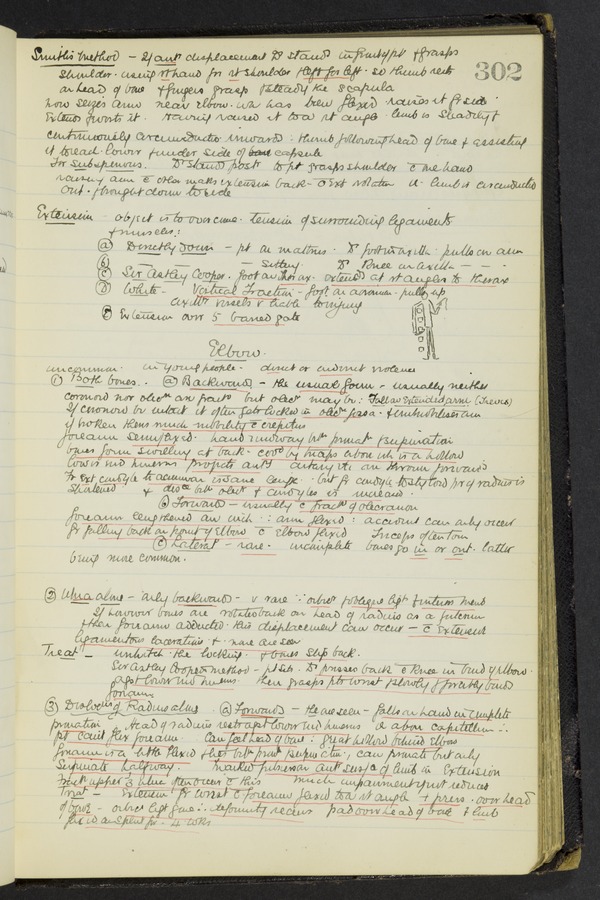 302
Smith's method – If ant^r displacement D^r stands in front of pt & grasps
shoulder using rt hand for rt shoulder & left for left so thumb rests
on head of bone & fingers grasp & steady the scapula
now seizes arm near elbow wh has been flexed raises it fr side
Having raised it to a rt angle limb is steadily &
continuously circumducted inwards thumb following head of bone & assisting
it to reach lower & under side of capsule
For Subspinous. D^r stands post^r to pt grasps shoulder c̄ one hand
raising arm c̄ other makes extension back & ext rotation it limb is circumducted
out & brought down to side
Extension object is to overcome tension of surrounding ligaments
& muscles:
(a) Directly down – pt on mattress D^r foot in axilla pulls on arm
(b) – – Sitting D^r Knee in axilla – –
(c) Sir Astley Cooper. foot on thorax extends at rt angles to thorax
(d) White – Vertical Traction – foot on acromion pulls up
axill^y vessels v liable to injury
(e) Extension over 5 barred gate
Elbow.
uncommon in young people. direct or indirect violence
① Both bones. (a) Backwards – the usual form – usually neither
coronoid nor olec^n are fract^d but olec^n may be: Falls on extended arm
If coronoid be intact it often gets locked in olec^n fossa
if broken there's much mobility & crepitus
forearm semiflexed hand midway btn pronat^n & supination
bones form swelling at back cov^d by triceps above wh is a hollow
lower end humerus projects ant^ly artery etc are thrown forwards
Fr ext condyle to acromion is same length but fr condyle to styloid pr of radius is
shortened & dis^ce btn olec^n & condyles is increased
(b) Forwards – usually c̄ fract^e of olecranon
forearm lengthened an inch: arm flexed: accident can only occur
fr falling back on point of elbow c̄ elbow flexed Triceps often torn
(c) Lateral – rare. incomplete bones go in or out. latter
being more common.
② Ulna alone – only backwards – v rare ∵ orbic^r & oblique lig^t & inteross memb
If however bones are rotated back on head of radius as a fulcrum
& then forearm adducted this displacement can occur – c̄ extensive
ligamentous laceration & rare are seen
Treat – unhitch the locking & bones slip back.
Sir Astley Cooper's method – pt sits. D^r presses back c̄ Knee in bend of elbow
ag^st lower end humerus then grasps pts wrist & slowly & forcibly bends
forearm
③ Disloc^n of Radius alone (a) Forwards – the one seen – falls on hand in complete
pronation. Head of radius rests ag^st lower end humerus a above capitellum ∴
pt can't flex forearm Can feel head of bone: great hollow behind elbow
forearm is a little flexed & hd btn pron^n & supination, can pronate but only
supinate halfway. marked fulness on ant surface of limb in Extension
much impairment if not reduced
Treat – Extension fr wrist c̄ forearm flexed to a rt angle & press over head
of bone – orbic^r lig^t gone ∴ deformity recurs pad over head of bone & limb
fixed on splint for 4 wks.